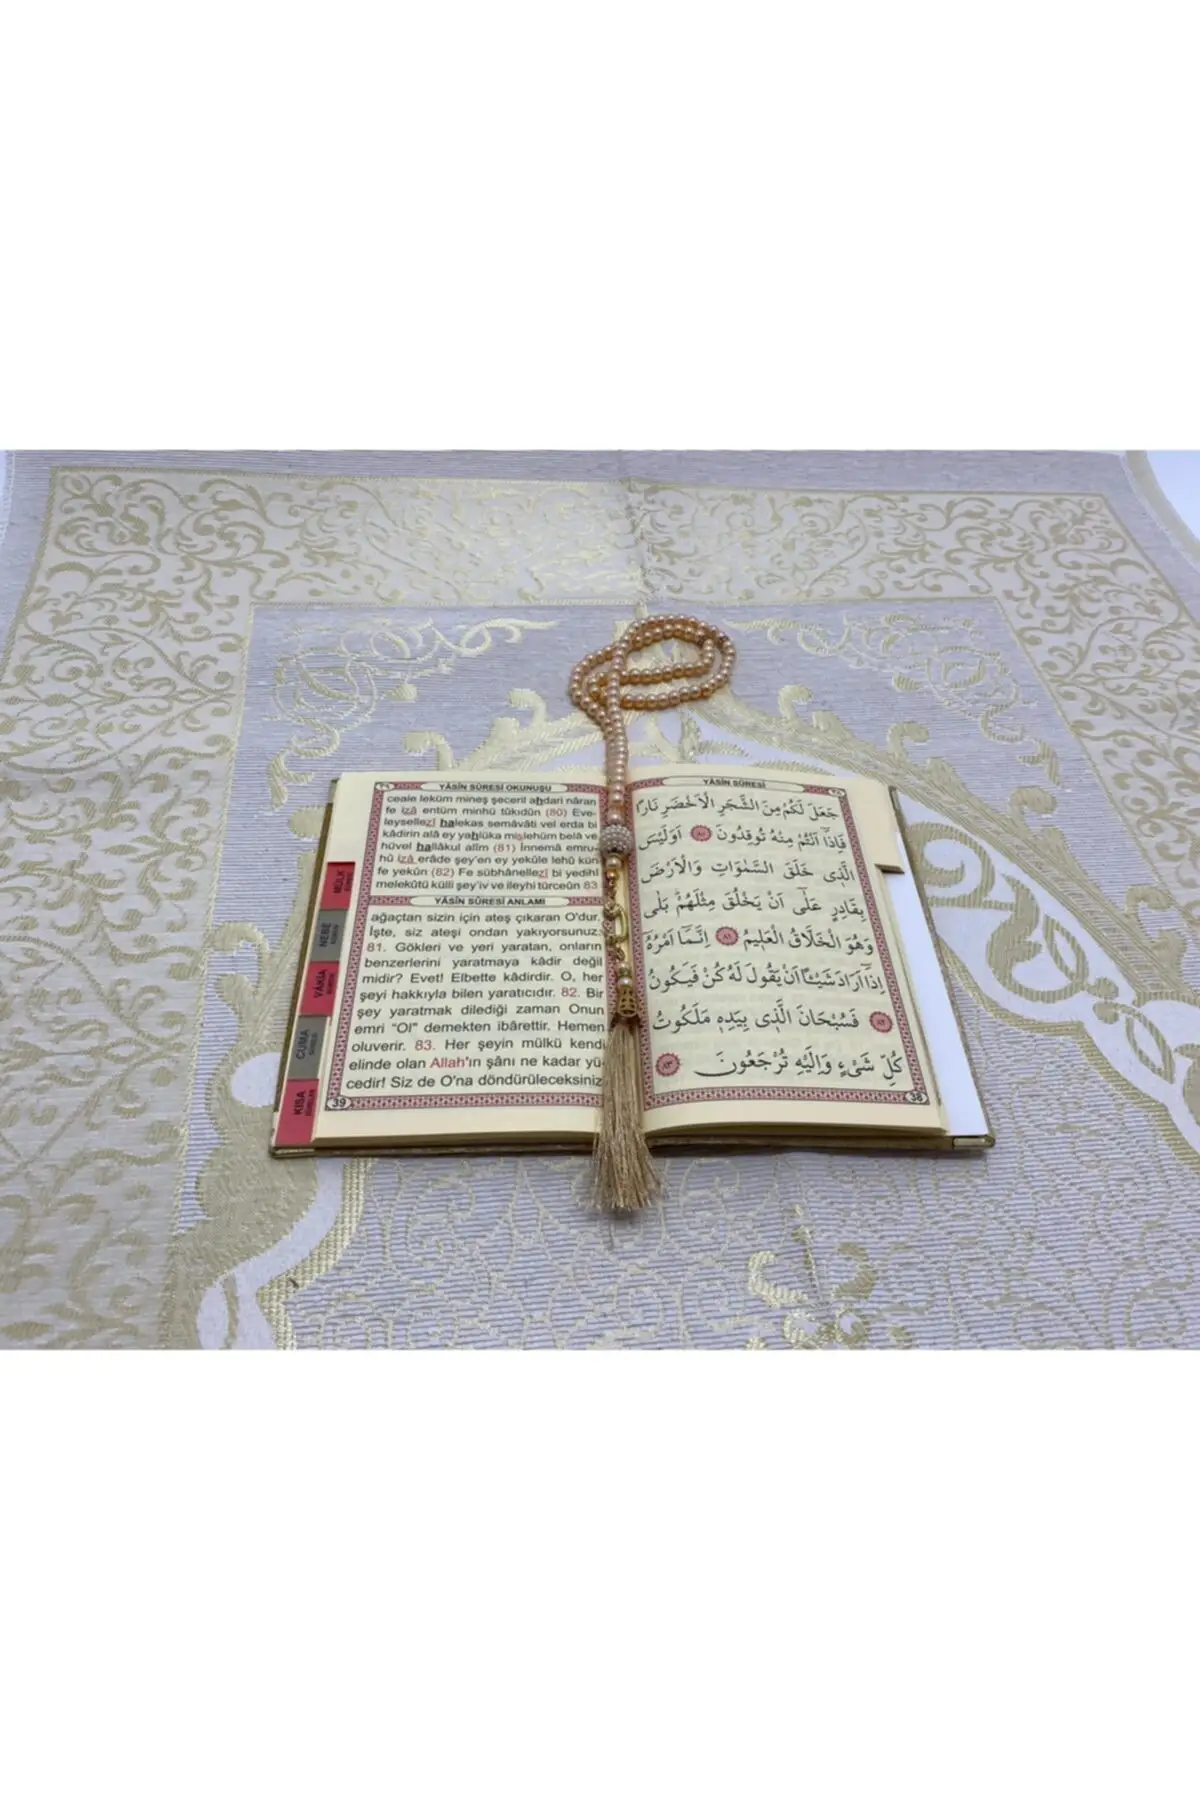 YÂSÎN SÛRESİ OKUNUŞU
ceale leküm mineş şeceril ahdari nâran
fe izâ entüm minhü tûkıdûn (80) Eve-
leysellezî halekas semâvâti vel erda bi
kâdirin alâ ey yahlüka mislehüm belâ ve
hüvel hallâkul alîm (81) İnnemâ emru-
hû izâ erâde şey'en ey yekûle lehû kün
fe yekûn (82) Fe sübhânellezî bi yedihî
melekûtü külli şey'iv ve ileyhi türceûn 83
YÂSÎN SÛRESİ ANLAMI
ağaçtan sizin için ateş çıkaran O'dur.
İşte, siz ateşi ondan yakıyorsunuz.
81. Gökleri ve yeri yaratan, onların
benzerlerini yaratmaya kâdir değil
midir? Evet! Elbette kâdirdir. O, her
şeyi hakkıyla bilen yaratıcıdır. 82. Bir
şey yaratmak dilediği zaman Onun
emri "Ol" demekten ibârettir. Hemen
oluverir. 83. Her şeyin mülkü kendi
elinde olan Allah'ın şânı ne kadar yü-
cedir! Siz de O'na döndürüleceksiniz
39
MÜLK
NEBE
VÂKIA
CUMA
KISA
YÂSÎN SÛRESİ
جَعَلَ لَكُمْ مِنَ الشَّجَرِ الْاَخْضَرِ نَارًا
فَاِذَٓا اَنْتُمْ مِنْهُ تُوقِدُونَ ٨٠ اَوَلَيْسَ
الَّذ۪ى خَلَقَ السَّمٰوَاتِ وَالْاَرْضَ
بِقَادِرٍ عَلٰٓى اَنْ يَخْلُقَ مِثْلَهُمْ بَلٰى
وَهُوَ الْخَلَّاقُ الْعَل۪يمُ ٨١ اِنَّمَٓا اَمْرُهُٓ
اِذَٓا اَرَادَ شَيْـًٔا اَنْ يَقُولَ لَهُ كُنْ فَيَكُونُ
٨٢ فَسُبْحَانَ الَّذ۪ى بِيَدِه۪ مَلَكُوتُ
كُلِّ شَىْءٍ وَاِلَيْهِ تُرْجَعُونَ ٨٣
38